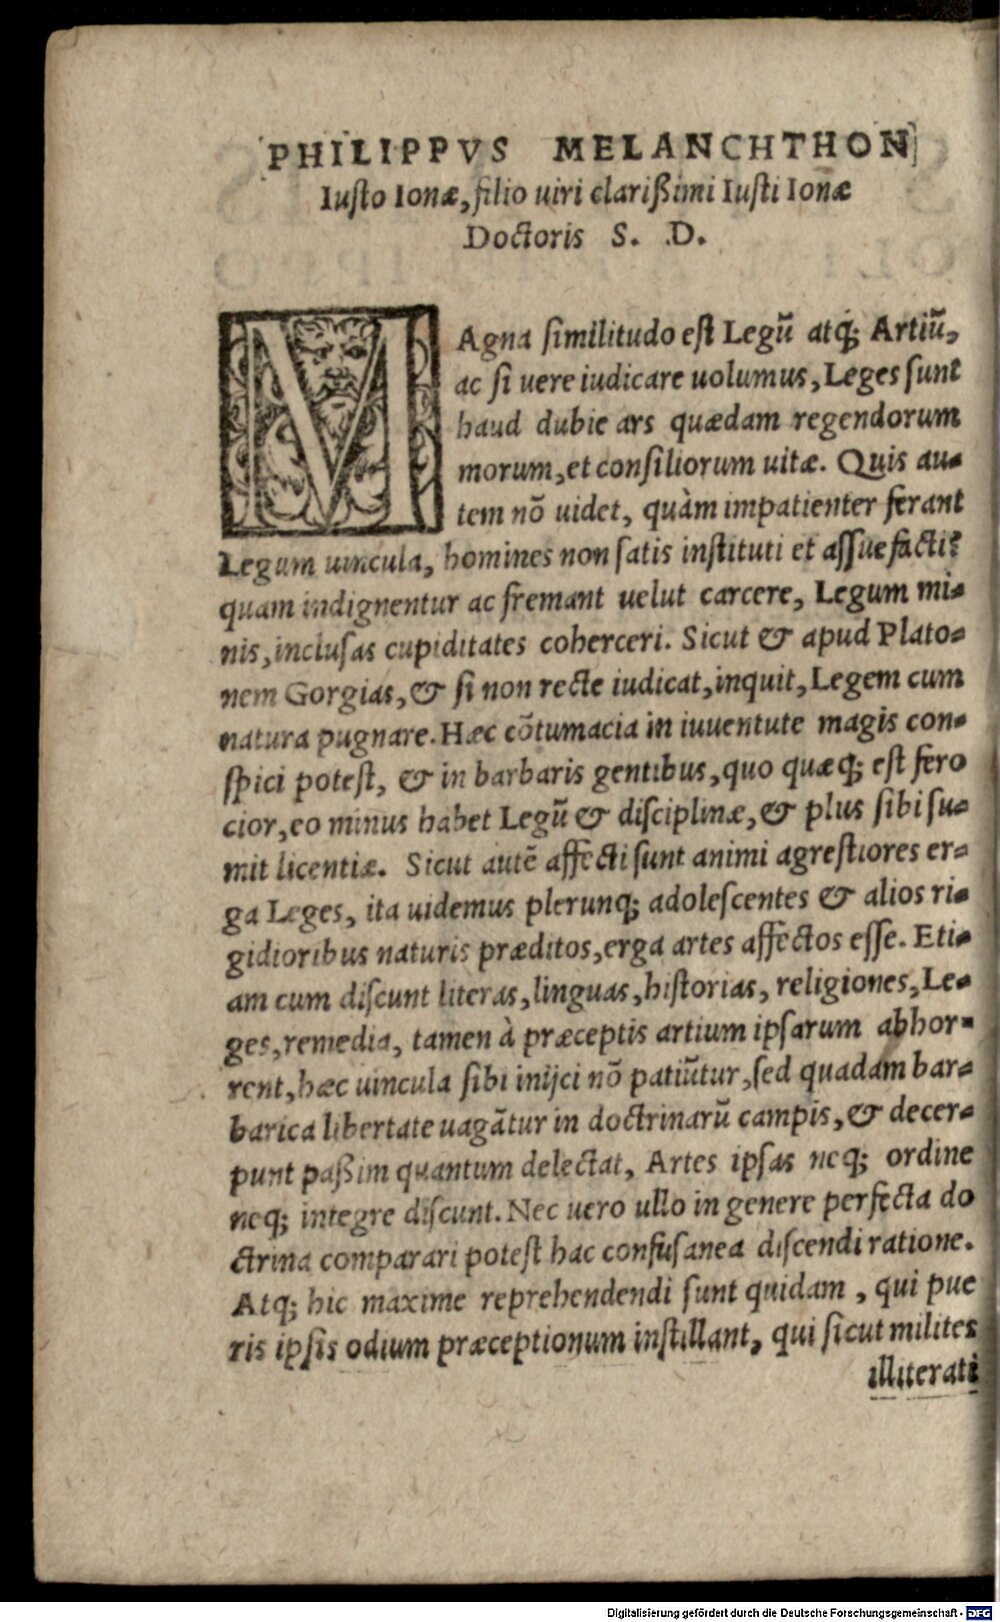 PHILIPPVS MELANCHTHON
Iusto Ionæ, filio uiri clarißimi Iusti Ionæ
Doctoris S. D.
MAgna similitudo est Legū atq; Artiū,
ac si uere iudicare uolumus, Leges sunt
haud dubie ars quædam regendorum
morum, et consiliorum uitæ. Quis au-
tem nō uidet, quàm impatienter ferant
Legum uincula, homines non satis instituti et assuefacti?
quam indignentur ac fremant uelut carcere, Legum mi-
nis, inclusas cupiditates coherceri. Sicut & apud Plato-
nem Gorgias, & si non recte iudicat, inquit, Legem cum
natura pugnare. Hæc cōtumacia in iuuentute magis con-
spici potest, & in barbaris gentibus, quo quæq; est fero
cior, eo minus habet Legū & disciplinæ, & plus sibi su-
mit licentiæ. Sicut autē affecti sunt animi agrestiores er-
ga Leges, ita uidemus plerunq; adolescentes & alios ri-
gidioribus naturis præditos, erga artes affectos esse. Eti-
am cum discunt literas, linguas, historias, religiones, Le-
ges, remedia, tamen à præceptis artium ipsarum abhor-
rent, hæc uincula sibi inijci nō patiūtur, sed quadam bar-
barica libertate uagātur in doctrinarū campis, & decer-
punt paßim quantum delectat, Artes ipsas neq; ordine
neq; integre discunt. Nec uero ullo in genere perfecta do
ctrina comparari potest hac confusanea discendi ratione.
Atq; hic maxime reprehendendi sunt quidam, qui pue
ris ipsis odium præceptionum instillant, qui sicut milites
illiterati
Digitalisierung gefördert durch die Deutsche Forschungsgemeinschaft - DFG